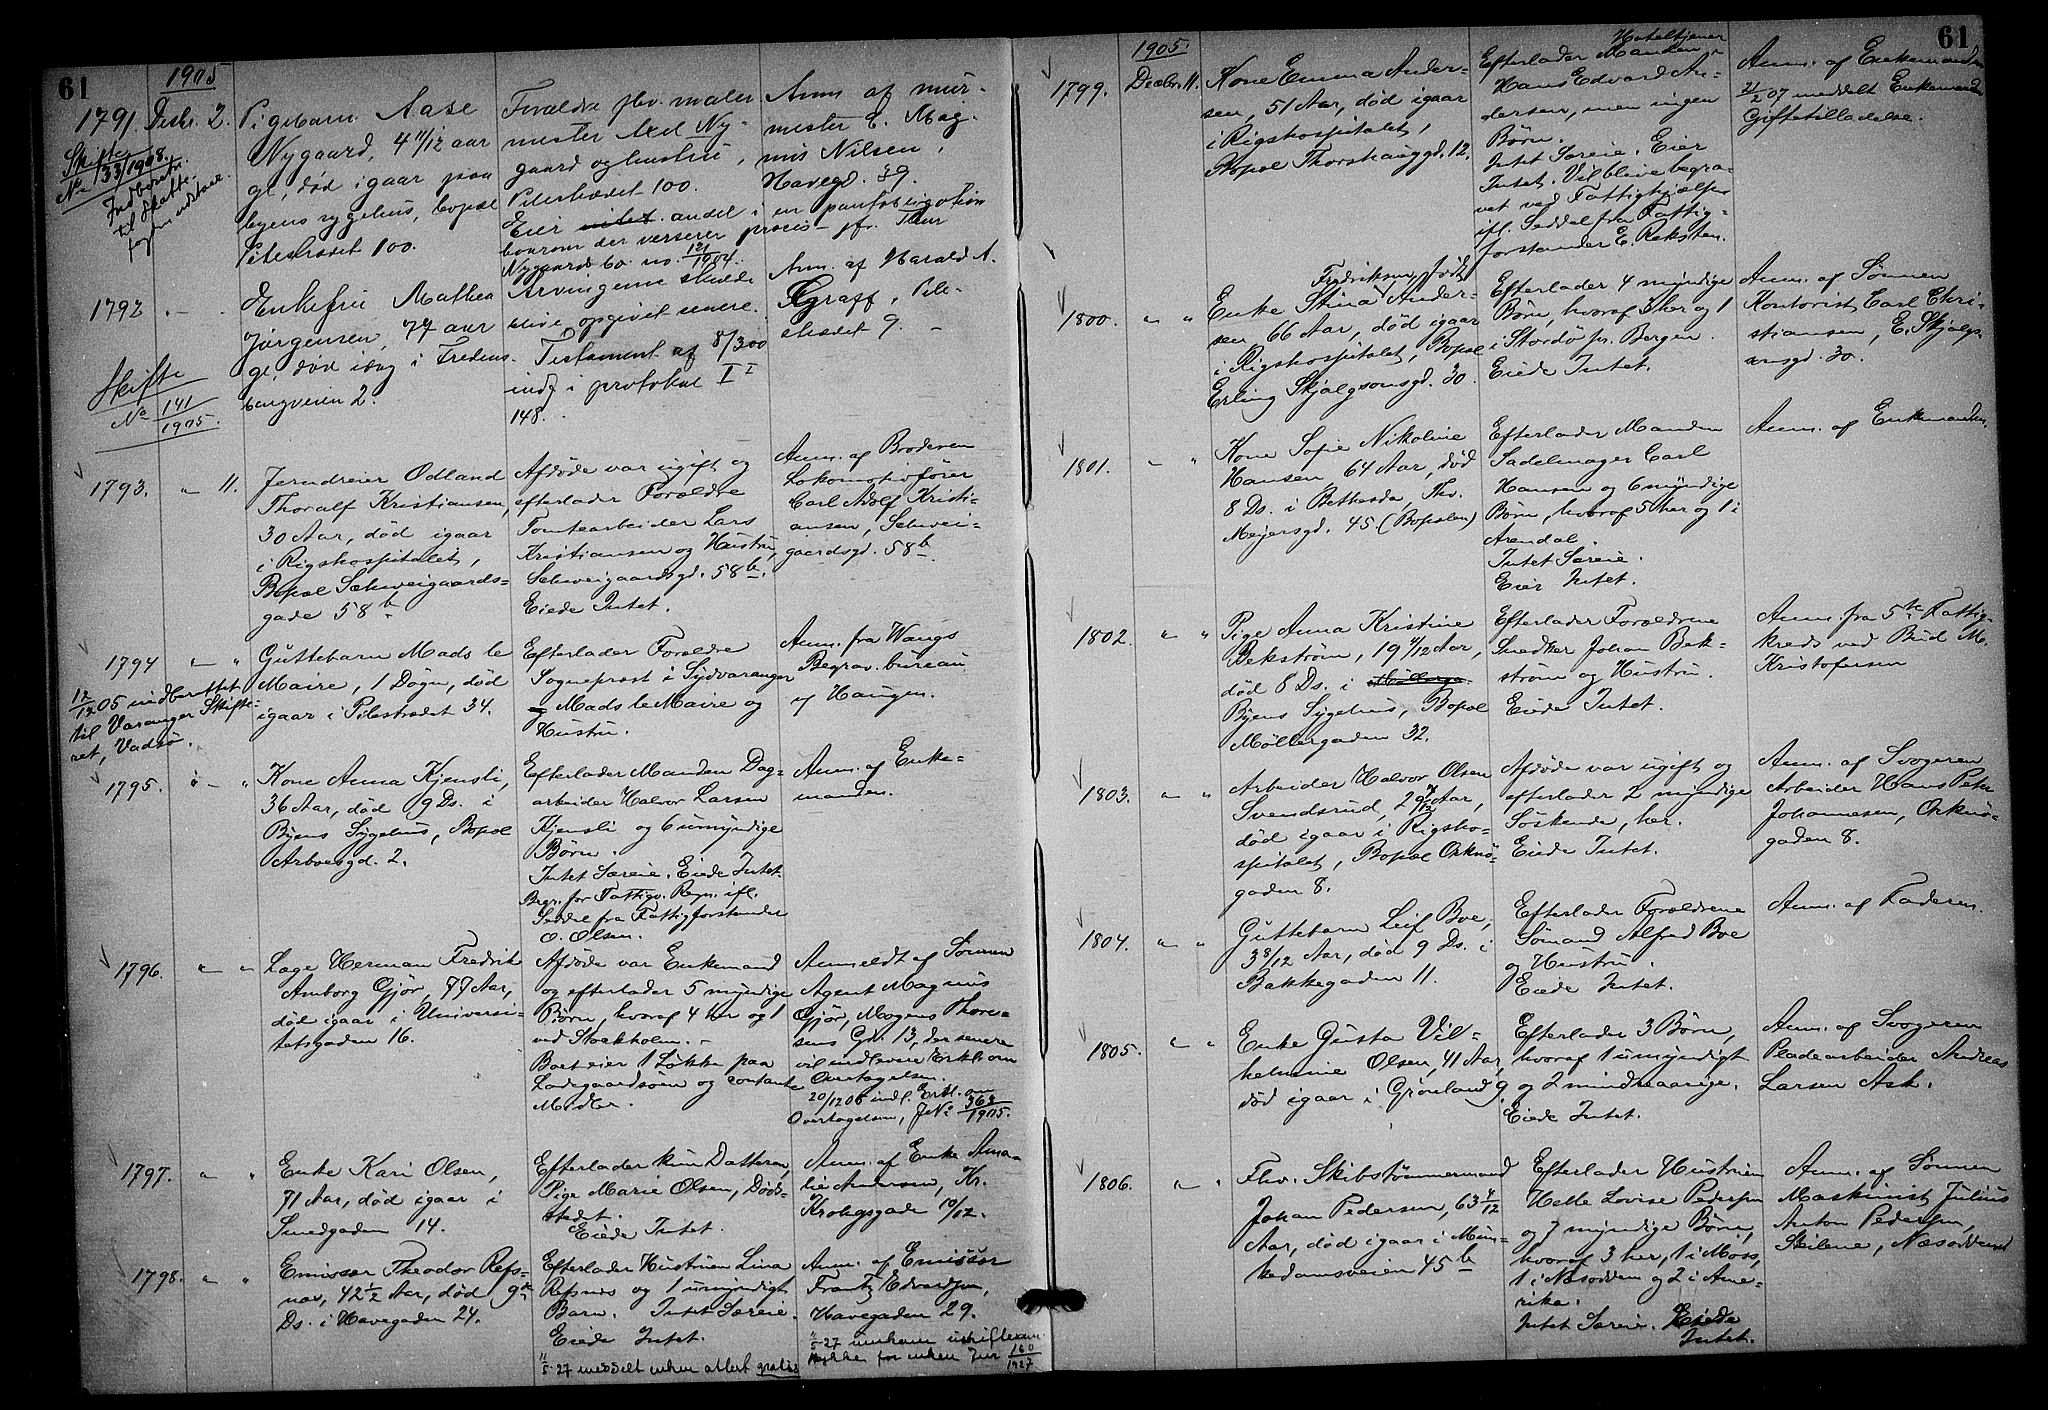 61
1905
1791. Decbr. 2.
Skifte
No 133/1908.
Indberetn.
til Skifte-
Pigebarn Aase
Nygaard, 4 11/12 aar
gl., død igaar paa
byens sygehus, bopæl
Pilestrædet 100.
Forældre fhv. maler
mester Axel Ny-
gaard og hustru,
Pilestrædet 100.
Eier andel i en panteobligation
hvorom der verserer proces jfr. Thur
Nygaards bo no. 121/1904.
Anm. af mur-
mester C. Mag-
nus Nilsen,
Havegd. 39.
1792 . - .
Skifte
No 141
1905.
Enkefru Mathea
Jørgensen, 77 aar
gl., død idag i Fredens-
borgveien 2.
Arvingerne skulde
blive opgivet senere.
Testament af 8/3 00
indf i protokol II
148.
Anm. af Harald A.
Graff, Pile-
strædet 9.
1793. " 11.
Jerndreier Odland
Thoralf Kristiansen,
30 Aar, død igaar
i Rigshospitalet,
Bopæl Schweigaards-
gade 58 b
Afdøde var ugift og
efterlader Forældre
Tomtearbeider Lars
Kristiansen og Hustru,
Schweigaardsgd. 58 b.
Eiede Intet.
Anm. af Broderen
Lokomotivfører
Carl Adolf Kristi-
ansen, Schwei-
gaardsgd. 58 b
1794 " "
12/12 05 indberettet
til Varanger Skifte-
ret, Vadsø.
Guttebarn Mads le
Maire, 1 Døgn, død
igaar i Pilestrædet 34.
Efterlader Forældre
Sogneprest i Sydvaranger
Mads le Maire og
Hustru.
Anm. fra Wangs
Begrav. bureau
v/ Haugen.
1795. " "
Kone Anna Kjensli,
36 Aar, død 9 Ds. i
Byens Sygehus, Bopæl
Arbosgd. 2.
Efterlader Manden Dag-
arbeider Halvor Larsen
Kjensli og 6 umyndige
Børn.
Intet Særeie. Eiede Intet.
Begr. for Fattigv. Regn. ifl.
Seddel fra Fattigforstander
O. Olsen.
Anm. af Enke-
manden.
1796. " "
Læge Herman Fredrik
Amborg Gjør, 77 Aar,
død igaar i Universi-
tetsgaden 16.
Afdøde var Enkemand
og efterlader 5 myndige
Børn, hvoraf 4 her og 1
ved Stockholm. -
Boet eier 1 Løkke paa
Ladegaardsøen og contante
Midler.
Anmeldt af Sønnen
Agent Magnus
Gjør, Mogens Thore-
sens Gd. 13, der senere
vil indlevere Erkl. om
Overtagelsen.
20/12 05 indl. Erkl. om
Overtagelsen, JNo 363/1905.
1797. " "
Enke Kari Olsen,
71 Aar, død igaar i
Smedgaden 14.
Efterlader kun Datteren,
Pige Marie Olsen, Døds-
stedet.
Eiede Intet.
Anm. af Enke Ama-
lie Andersen, Kr.
Kroghsgade 10/12.
1798. " "
Emissær Theodor Refs-
nes, 42 1/2 Aar, død 9de
Ds. i Havegaden 24.
Efterlader Hustruen Lina
Refsnes og 1 umyndigt
Barn. Intet Særeie.
Eiede Intet.
11/5-27 meddelt enken attest gratis
Anm. af Emissær
Frantz Edvardsen,
Havegaden 29.
11/5-27 uskiftet
for enken Jnr 160/1927
61
1905.
1799. Decbr. 11.
Kone Emma Ander-
sen, 51 Aar, død igaar
i Rigshospitalet,
Bopæl Thorshauggd. 12.
Hoteltjener
Efterlader Manden
Hans Edvard An-
dersen, men ingen
Børn.
Intet Særeie. Eier
Intet. Vil blive begra-
vet ved Fattighjælp
ifl. Seddel fra Fattig-
forstander E. Raksten.
Anm. af Enkemanden
21/2 07 meddelt Enkemanden
Giftetilladelse.
1800. " "
Fredriksen, født
Enke Stina Ander-
sen 66 Aar, død igaar
i Rigshospitalet, Bopæl
Erling Skjalgsonsgd. 30.
Efterlader 4 myndige
Børn, hvoraf 3 her og 1
i Stordø pr. Bergen.
Eiede Intet.
Anm. af Sønnen
Kontorist Carl Chri-
stiansen, E. Skjalgs-
onsgd. 30.
1801. " "
Kone Sofie Nikoline
Hansen, 64 Aar, død
8 Ds. i Bethesda, Thv.
Meyersgd. 45 (Bopælen)
Efterlader Manden
Sadelmager Carl
Hansen og 6 myndige
Børn, hvoraf 5 her og 1 i
Arendal.
Intet Særeie.
Eier Intet.
Anm. af Enkemanden.
1802. " "
Pige Anna Kristine
Bekstrøm, 19 11/12 Aar,
død 8 Ds. i
Byens Sygehus, Bopæl
Møllergaden 32.
Efterlader Forældrene
Snedker Johan Bek-
strøm og Hustru.
Eiede Intet.
Anm. fra 5te Fattig-
kreds ved Bud M.
Kristofersen
1803. " "
Arbeider Halvor Olsen
Svendsrud, Aar,
død igaar i Rigsho-
spitalet, Bopæl Orknø-
gaden 8.
Afdøde var ugift og
efterlader 2 myndige
Søskende, her.
Eiede Intet.
Anm. af Svogeren
Arbeider Hans Peter
Johannesen, Orknø-
gaden 8.
1804. " "
Guttebarn Leif Boe,
3 8/12 Aar, død 9 Ds. i
Bakkegaden 11.
Efterlader Forældrene
Sømand Alfred Boe
og Hustru.
Eiede Intet.
Anm. af Faderen.
1805. " "
Enke Gusta Vil-
helmine Olsen, 41 Aar,
død igaar i Grønland 9.
Efterlader 3 Børn,
hvoraf 1 umyndigt
og 2 mindreaarige.
Eiede Intet.
Anm. af Svogeren
Pladearbeider Andreas
Larsen Ask.
1806. " "
Fhv. Skibstømmermand
Johan Pedersen, 63 4/12
Aar, død igaar i Mun-
kedamsveien 45 b
Efterlader Hustruen
Helle Lovise Pedersen
og 7 myndige Børn,
hvoraf 3 her, 1 i Moss,
1 i Næsodden og 2 i Ame-
rika.
Intet Særeie. Eiede
Intet.
Anm. af Sønnen
Maskinist Julius
Anton Pedersen,
Steilene, Næsodden